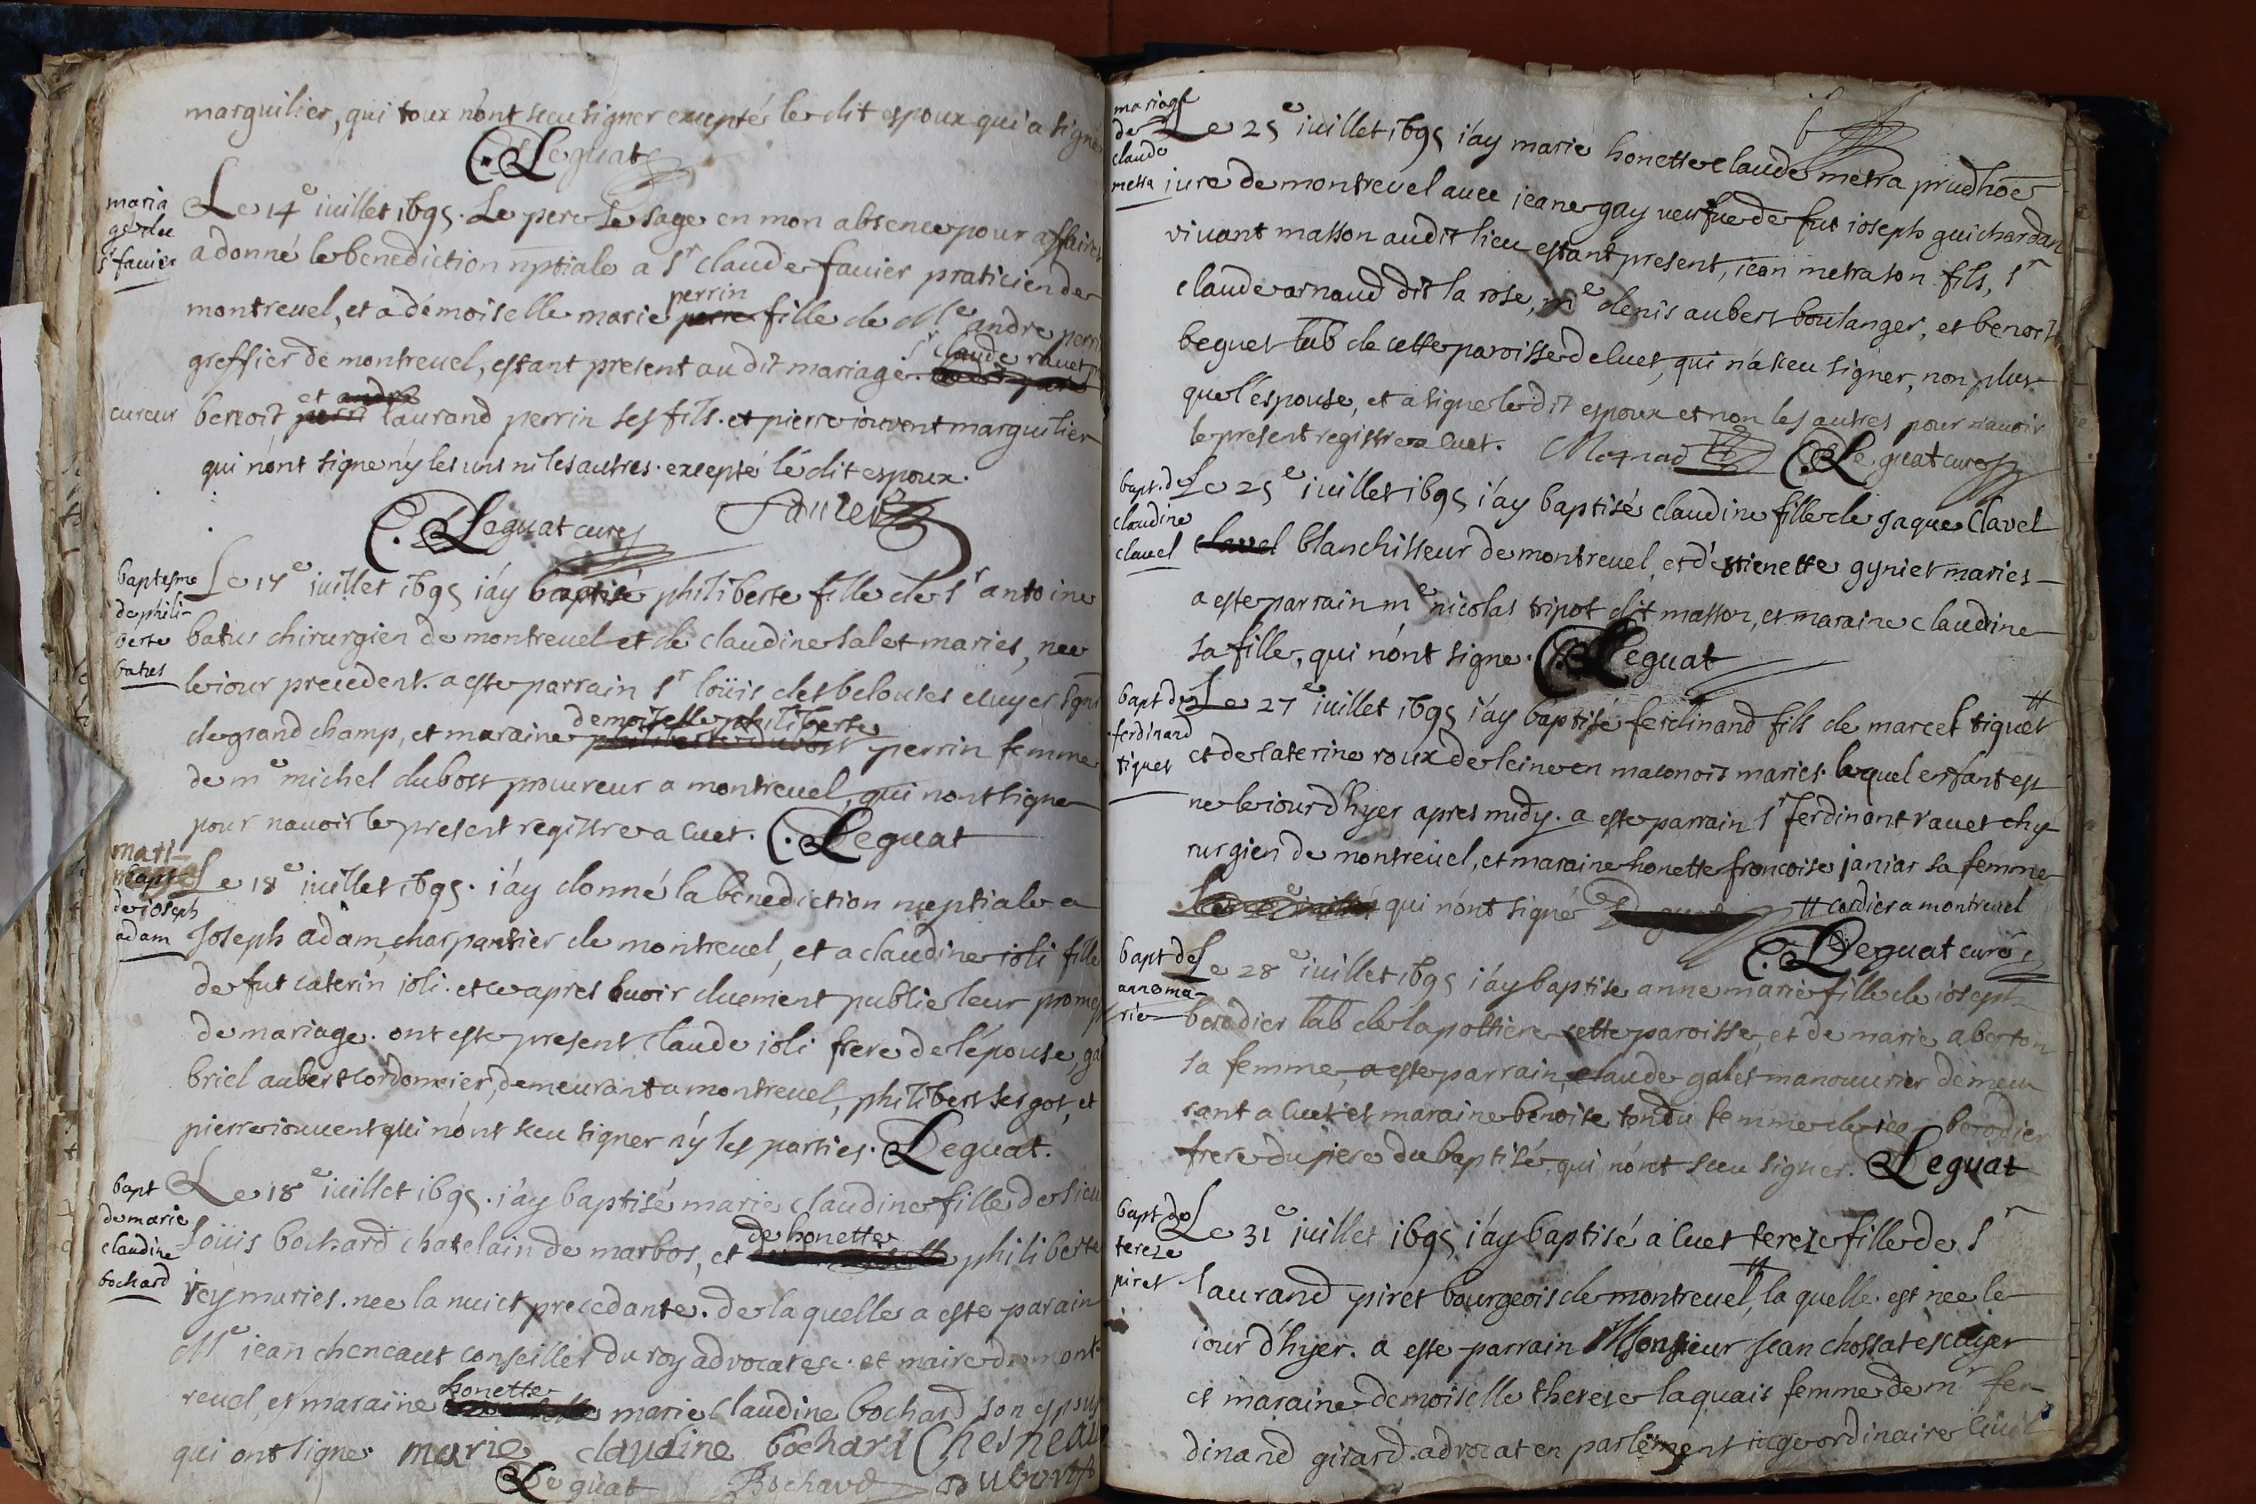 marguilier, qui toux n'ont sceu signer excepté le dit espoux qui a signé
C. Leguat
maria
ge du
sr favier
Le 14e iuillet 1695. Le pere le sage en mon absence pour affaires
a donné le benediction nptiale a sr claude favier praticien de
montrevel, et a démoiselle marie perrin fille de Me andre perrin
greffier de montrevel, estant present au dit mariage. sr claude ravet
cureur
benoit et laurand perrin ses fils. et pierre iouvent marguilier
qui n'ont signe n'y les uns ni les autres. excepté lé dit espoux.
C. Leguat curé favier
baptesme
de phili-
berte
batus
Le 17e iuillet 1695 i'ay baptisé philiberte fille de sr antoine
batus chirurgien de montrevel et de claudine salet mariés, nee
le iour precedent. a este parrain sr loüis des belouses escuyer sgnr
de grand champ, et maraine demoiselle philiberte perrin femme
de me michel dubost procureur a montrevel, qui nont signe
pour navoir le present registre a cuet. C. Leguat
mari-
bapt
de ioseph
adam
Le 18e iuillet 1695. i'ay donné la benediction nuptiale a
Joseph adam, charpantier de montrevel, et a claudine ioli fille
de fut caterin ioli. et ce apres avoir duement publie leur promesse
de mariage. ont este present claude ioli frere de l'épouse, ga
briel aubert cordonnier, demeurant a montrevel, philibert sergot, et
pierre iouvent qui n'ont sceu signer n'y les parties. Leguat.
bapt
de marie
claudine
bochard
Le 18e iuillet 1695. i'ay baptisé marie claudine fille de sieur
Loüis bochard chatelain de marbos, et de honette philiberte
rey mariés. nee la nuict precedante. de la quelle a este parain
Me iean cheneaut conseiller du roy advocat &c. et maire de mont-
revel, et maraine honette marie claudine bochard son espouse
qui ont signe. marie claudine bochard Chesneau
Leguat Bochard
mariage
de
claude
metra
Le 25e iuillet 1695 i'ay marie honette claude metra prudhoe
iure de montrevel avec ieane gay veufve de fut ioseph guichardan
vivant masson audit lieu estant present, iean metra son fils, sr
claude arnaud dit la rose, me denis aubert boulanger, et benoit
beguet lab de cette paroisse de cuet, qui n'a sceu signer, non plus
que l'éspouse, et a signe le dit espoux et non les autres pour n'avoir
le present registre a cuet. C. Leguat curé
bapt. de
claudine
clavel
Le 25e iuillet 1695 i'ay baptisé claudine fille de jaque Clavel
clavel blanchisseur de montrevel, et d'estienette gyniet mariés
a este parrain me nicolas tripot dit masson, et maraine claudine
sa fille, qui n'ónt signe. C. Leguat
bapt de
ferdinand
tiquet
Le 27e iuillet 1695 i'ay baptisé ferdinand fils de marcel tiquet #
et de caterine roux de leine en maconois mariés. lequel enfant est
ne le iour d'hyer apres midy. a este parrain sr ferdinant ravet chy
rurgien de montrevel, et maraine honette francoise janiar sa femme
qui n'ónt signé # cordier a montrevel
C. Leguat curé
bapt de
anne ma-
rie
Le 28e iuillet 1695 i'ay baptise anne marie fille de ioseph
berodier lab de la pottiere cette paroisse, et de marie aberton
sa femme, a este parrain, claude galet manouvrier demeu
rant a cuet et maraine benoite tondu femme de berodier
frere du pere du baptisé, qui n'ónt sceu signer. Leguat
bapt de
tereze
piret
Le 31e iuillet 1695 i'ay baptisé a cuet tereze fille de sr
laurand piret bourgeois de montrevel, # la quelle est nee le
iour d'hyer. a este parrain Monsieur jean chossat escuyer
et maraine demoiselle therese laquais femme de mr fer-
dinand girard advocat en parlement iuge ordinaire civil